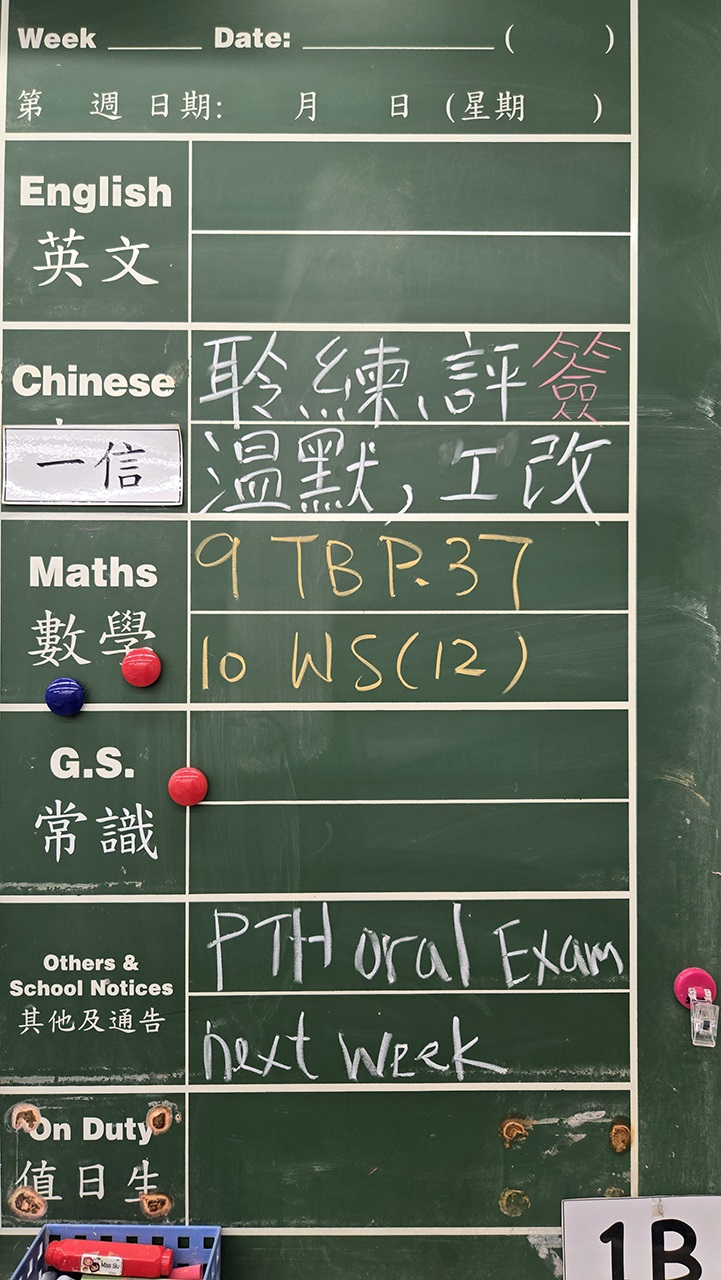 Week ______ Date: ____________ ( )
第 週 日期: 月 日 (星期 )
English
英文
Chinese
一信
聆練、評簽
溫默,工改
Maths
數學
9 TB P.37
10 WS(12)
G.S.
常識
Others &
School Notices
其他及通告
PTH oral Exam
next week
On Duty
值日生
1B
Miss Siu